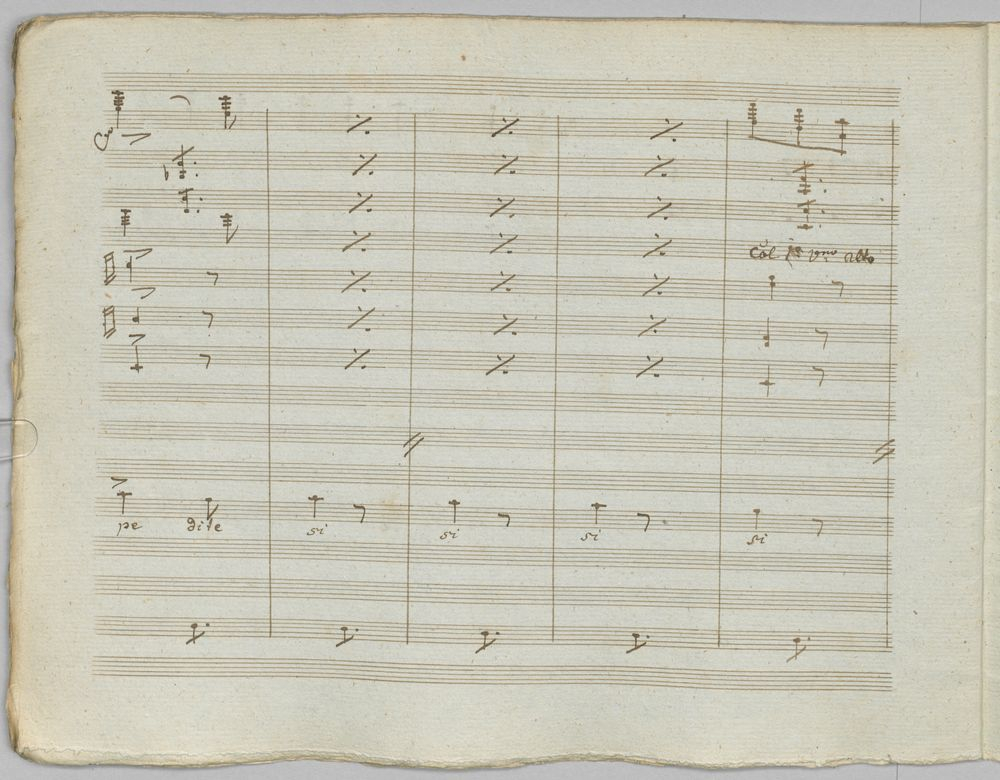 Col vno alto
pe dite si si si si